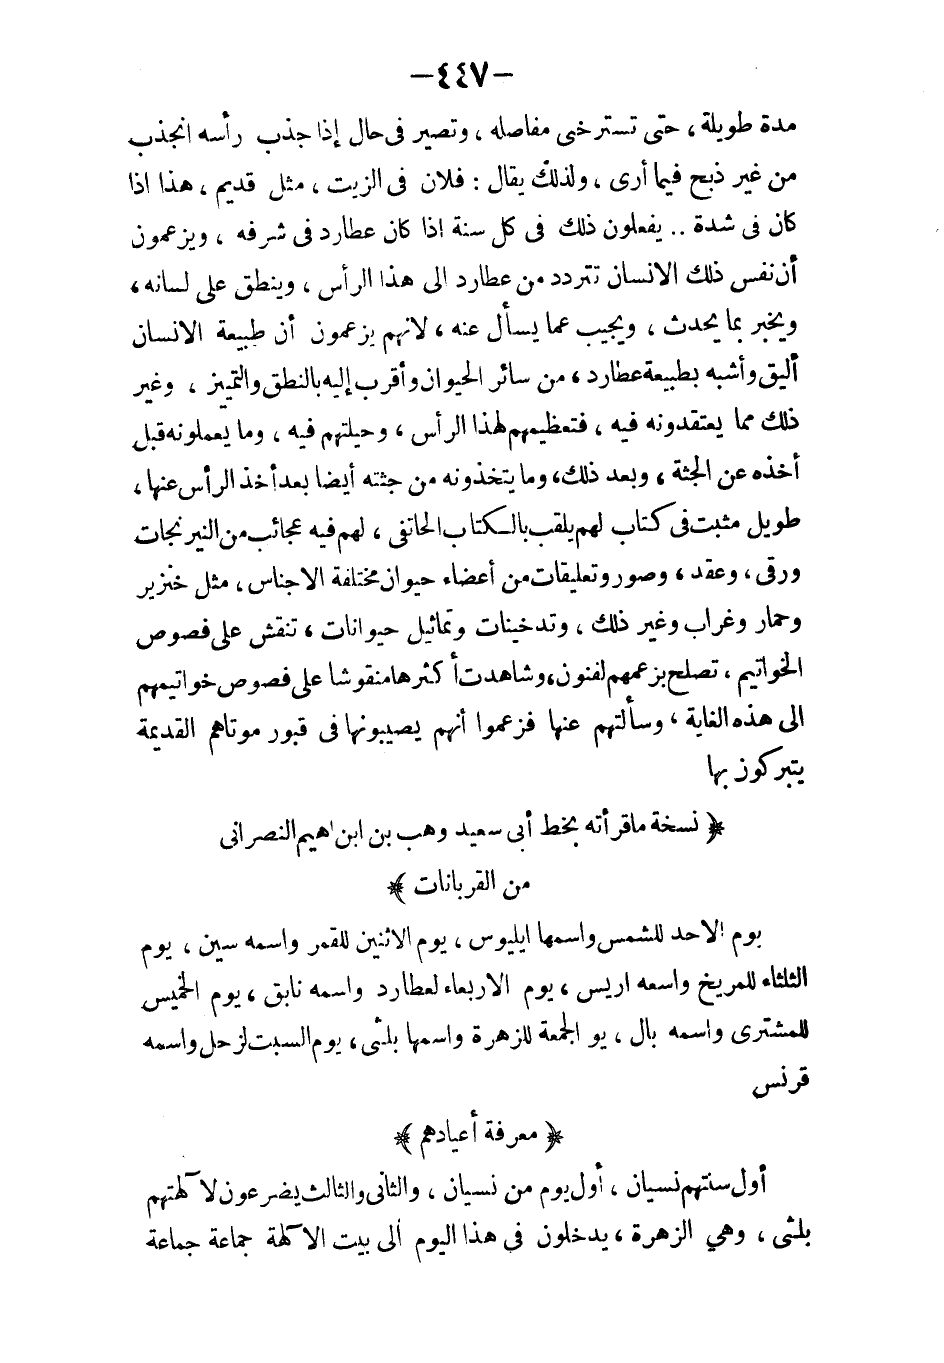 —٤٤٧—
مدة طويلة ، حتى تسترخى مفاصله ، وتصير فى حال إذا جذب رأسه انجذب
من غير ذبح فيما أرى ، ولذلك يقال : فلان فى الزيت ، مثل قديم ، هذا اذا
كان فى شدة .. يفعلون ذلك فى كل سنة اذا كان عطارد فى شرفه ، ويزعمون
أن نفس ذلك الانسان تتردد من عطارد الى هذا الرأس ، وينطق على لسانه ،
ويخبر بما يحدث ، ويجيب عما يسأل عنه ، لانهم يزعمون أن طبيعة الانسان
أليق وأشبه بطبيعة عطارد ، من سائر الحيوان وأقرب إليه بالنطق والتمييز ، وغير
ذلك مما يعتقدونه فيه ، فتعظيمهم لهذا الرأس ، وحيلتهم فيه ، وما يعملونه قبل
أخذه عن الجثة ، وبعد ذلك ، وما يتخذونه من جثته أيضا بعد أخذ الرأس عنها ،
طويل مثبت فى كتاب لهم يلقب بالكتاب الحاتفى ، لهم فيه عجائب من النيرنجات
ورقى ، وعقد ، وصور وتعليقات من أعضاء حيوان مختلفة الاجناس ، مثل خنزير
وحمار وغراب وغير ذلك ، وتدخينات وتماثيل حيوانات ، تنقش على فصوص
الخواتيم ، تصلح بزعمهم لفنون ، وشاهدت أكثرها منقوشا على فصوص خواتيمهم
الى هذه الغاية ، وسألتهم عنها فزعموا أنهم يصيبونها فى قبور موتاهم القديمة
يتبركون بها
﴿ نسخة ما قرأته بخط أبى سعيد وهب بن ابراهيم النصرانى
من القربانات ﴾
يوم الاحد للشمس واسمها ايليوس ، يوم الاثنين للقمر واسمه سين ، يوم
الثلثاء للمريخ واسمه اريس ، يوم الاربعاء لعطارد واسمه نابق ، يوم الخميس
للمشترى واسمه بال ، يو الجمعة للزهرة واسمها بلثى ، يوم السبت لزحل واسمه
قرنس
﴿ معرفة أعيادهم ﴾
أول سنتهم نسيان ، أول يوم من نسيان ، والثانى والثالث يضرعون لآلهتهم
بلثى ، وهي الزهرة ، يدخلون فى هذا اليوم ألى بيت الآلهة جماعة جماعة